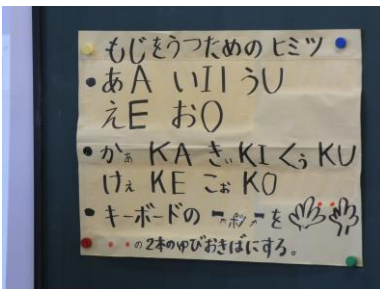 もじをうつための ヒミツ
•あA いII うU
えE おO
•かぁ KA きぃ KI くぅ KU
けぇ KE こぉ KO
•キーボードの ーポツー を
••の2本のゆびおきばにする。